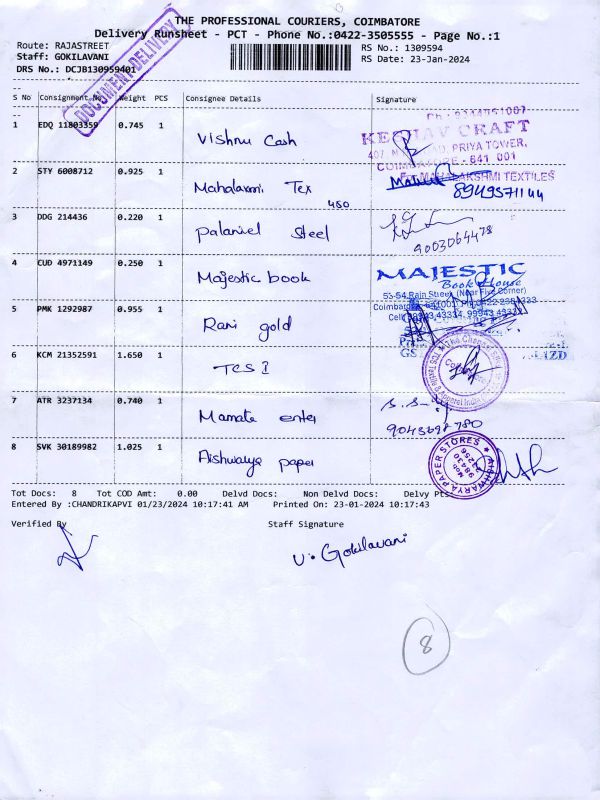 THE PROFESSIONAL COURIERS, COIMBATORE
Delivery Runsheet - PCT - Phone No.:0422-3505555 - Page No.:1
Route: RAJASTREET
RS No.: 1309594
Staff: GOKILAVANI
RS Date: 23-Jan-2024
DRS No.: DCJB130959401
DOCUMENT DELIVERY
S No Consignment No Weight PCS Consignee Details Signature
1 EDQ 11803359 0.745 1 Vishnu Cash
KESHAV CRAFT
PRIYA TOWER,
COIMBATORE - 641 001
2 STY 6008712 0.925 1 Mahalaxmi Tex
450
For MAHALAKSHMI TEXTILES
8949571144
3 DDG 214436 0.220 1 Palaniel Steel
9003064478
4 CUD 4971149 0.250 1 Majestic book
MAJESTIC
Book House
53-54, Raja Street, (Near Five Corner)
5 PMK 1292987 0.955 1 Rani gold
6 KCM 21352591 1.650 1 TCS I
7 ATR 3237134 0.740 1 Mamata enter
8 SVK 30189982 1.025 1 Aishwarya paper
AISHWARYA PAPER STORES
Tot Docs: 8 Tot COD Amt: 0.00 Delvd Docs: Non Delvd Docs: Delvy Pts:
Entered By :CHANDRIKAPVI 01/23/2024 10:17:41 AM Printed On: 23-01-2024 10:17:43
Verified By Staff Signature
V. Gokilavani
8